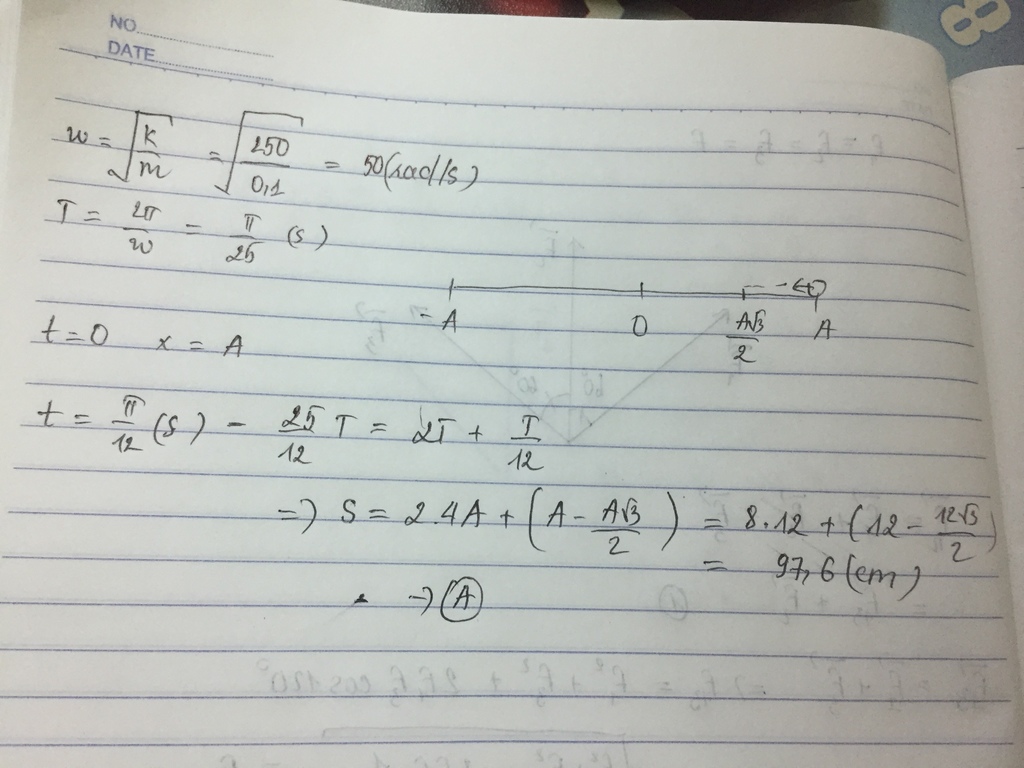 NO.
DATE
w = √(k/m) = √(250/0,1) = 50 (rad/s)
T = 2π/w = π/25 (s)
-A O A√3/2 A
t = 0 x = A
t = π/12 (s) - 25/12 T = 2T + T/12
=> S = 2.4A + (A - A√3/2) = 8.12 + (12 - 12√3/2)
= 97,6 (cm)
-> A